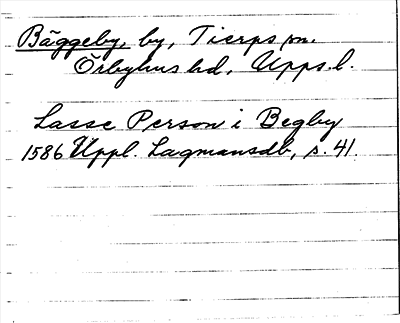 Bäggeby, by, Tierps sn.
Örbyhus hd, Upps.l.
Lasse Person i Begby
1586 Uppl. Lagmansdb, s. 41.